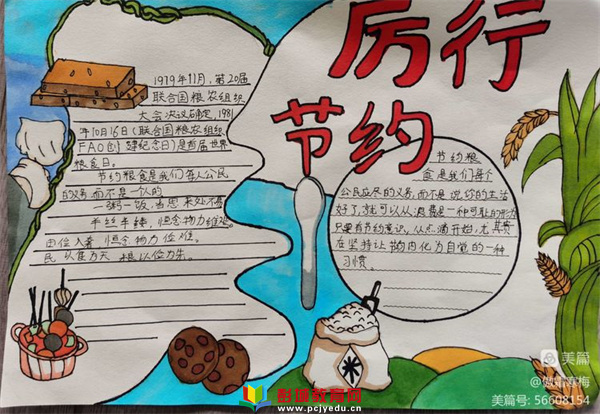 厉行
节约
1979年11月,第20届
联合国粮农组织
大会决议确定,1981
年10月16日(联合国粮农组织
FAO创建纪念日)是首届世界
粮食日。
节约粮食是我们每人公民
的义务,而不是一人的
一粥一饭,当思来处不易
半丝半缕,恒念物力维艰。
由位入奢,恒念物力位难。
民以食为天,
节约粮
食是我们每个
公民应尽的义务,而不是说你的生活
好了,就可以从浪费是一种可耻的形为
只要有节约意识,从点滴开始,尤其贵
在坚持让韵内化为自觉的一种
习惯。
米
美篇
美篇号: 56608154
创城教育网
www.pcjyedu.cn